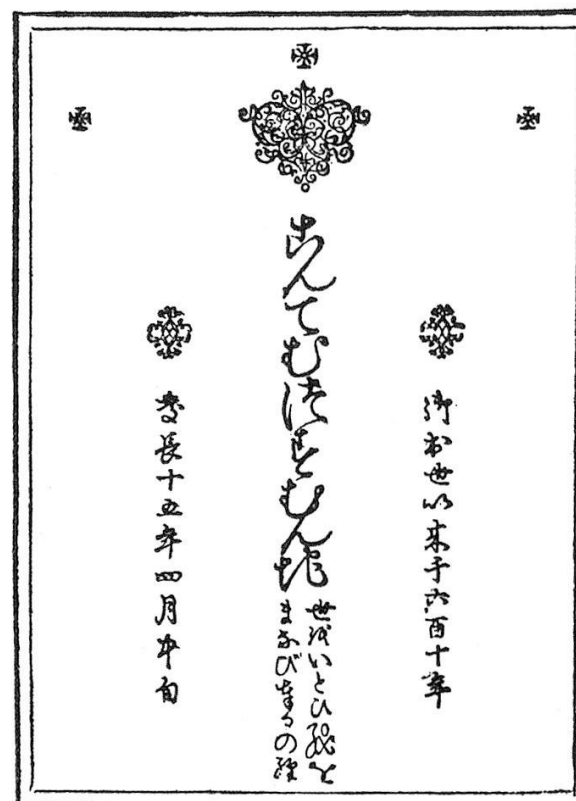 御出世以来千六百十年
こんてむつすむん地
世をいとひを
まなび奉るの経
慶長十五年四月中旬